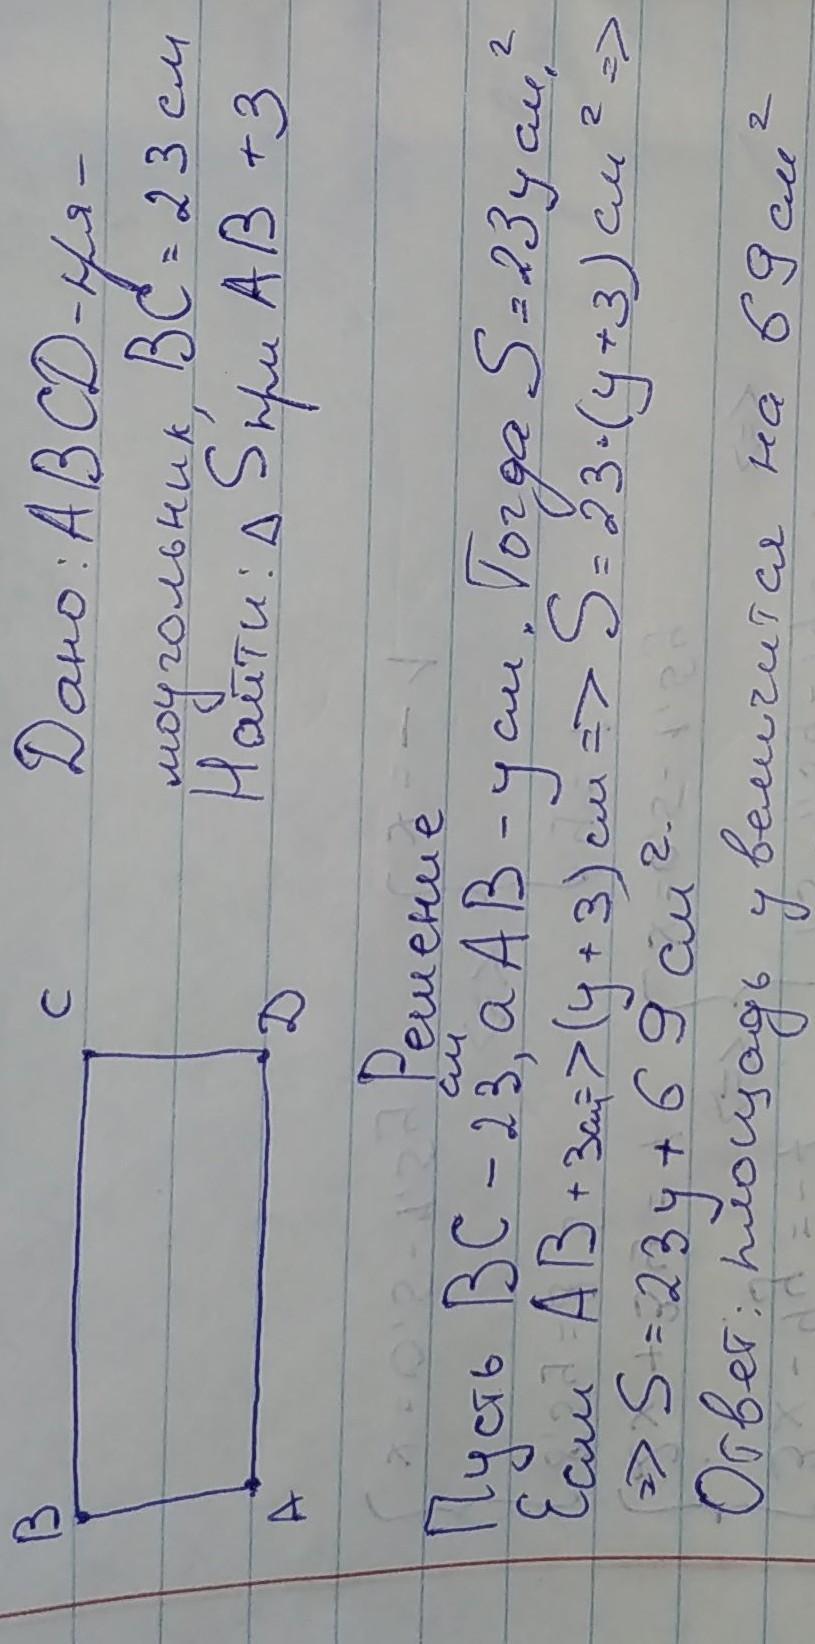 B
C
A
D
Дано: ABCD-пря-
моугольник, BC = 23 см
Найти: Δ S при AB + 3
Решение
Пусть BC - 23 см, а AB - y см. Тогда S = 23y см².
Если AB + 3см => (y + 3) см => S = 23·(y + 3) см² =>
=> S = 23y + 69 см².
Ответ: площадь увеличится на 69 см²